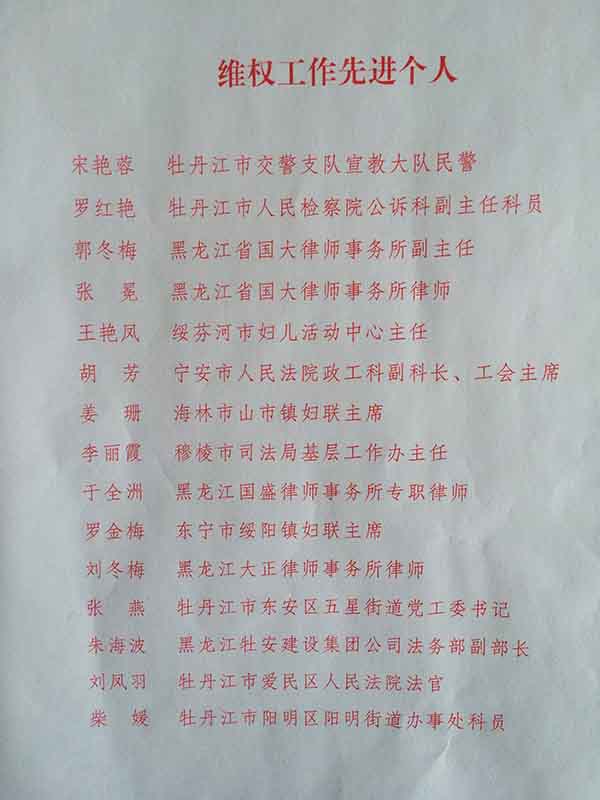 维权工作先进个人
宋艳蓉 牡丹江市交警支队宣教大队民警
罗红艳 牡丹江市人民检察院公诉科副主任科员
郭冬梅 黑龙江省国大律师事务所副主任
张 冕 黑龙江省国大律师事务所律师
王艳凤 绥芬河市妇儿活动中心主任
胡 芳 宁安市人民法院政工科副科长、工会主席
姜 珊 海林市山市镇妇联主席
李丽霞 穆棱市司法局基层工作办主任
于全洲 黑龙江国盛律师事务所专职律师
罗金梅 东宁市绥阳镇妇联主席
刘冬梅 黑龙江大正律师事务所律师
张 燕 牡丹江市东安区五星街道党工委书记
朱海波 黑龙江牡安建设集团公司法务部副部长
刘凤羽 牡丹江市爱民区人民法院法官
柴 媛 牡丹江市阳明区阳明街道办事处科员